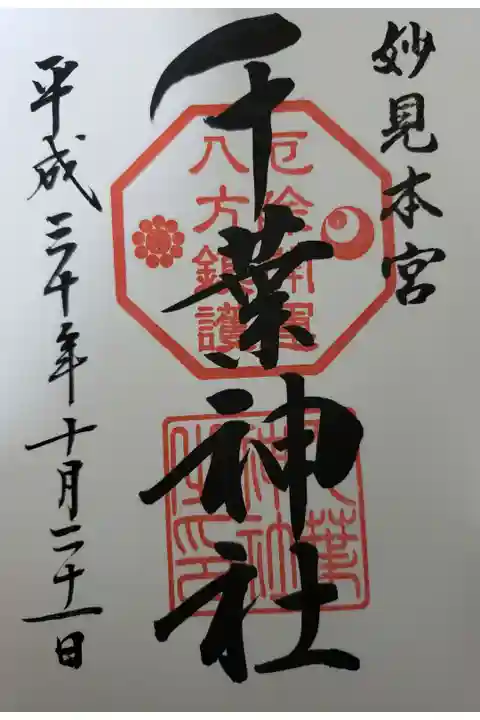 妙見本宮
千葉神社
厄除開運
八方鎮護
平成三十年十月二十一日